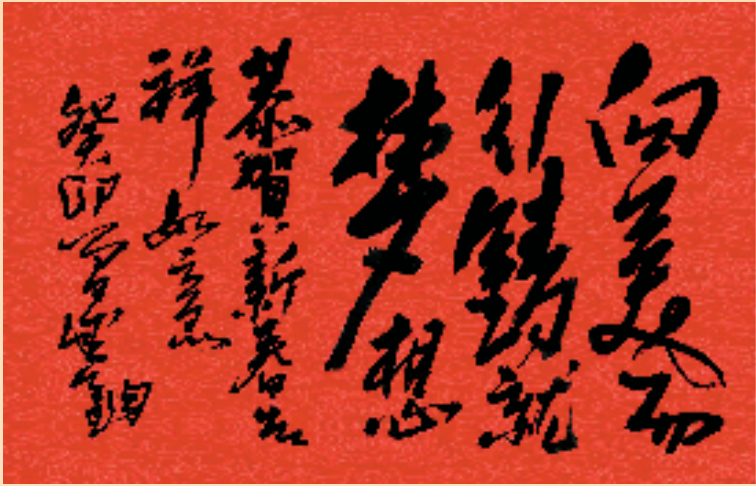 向美而
行铸就
梦想
恭贺新春吉
祥如意
癸卯